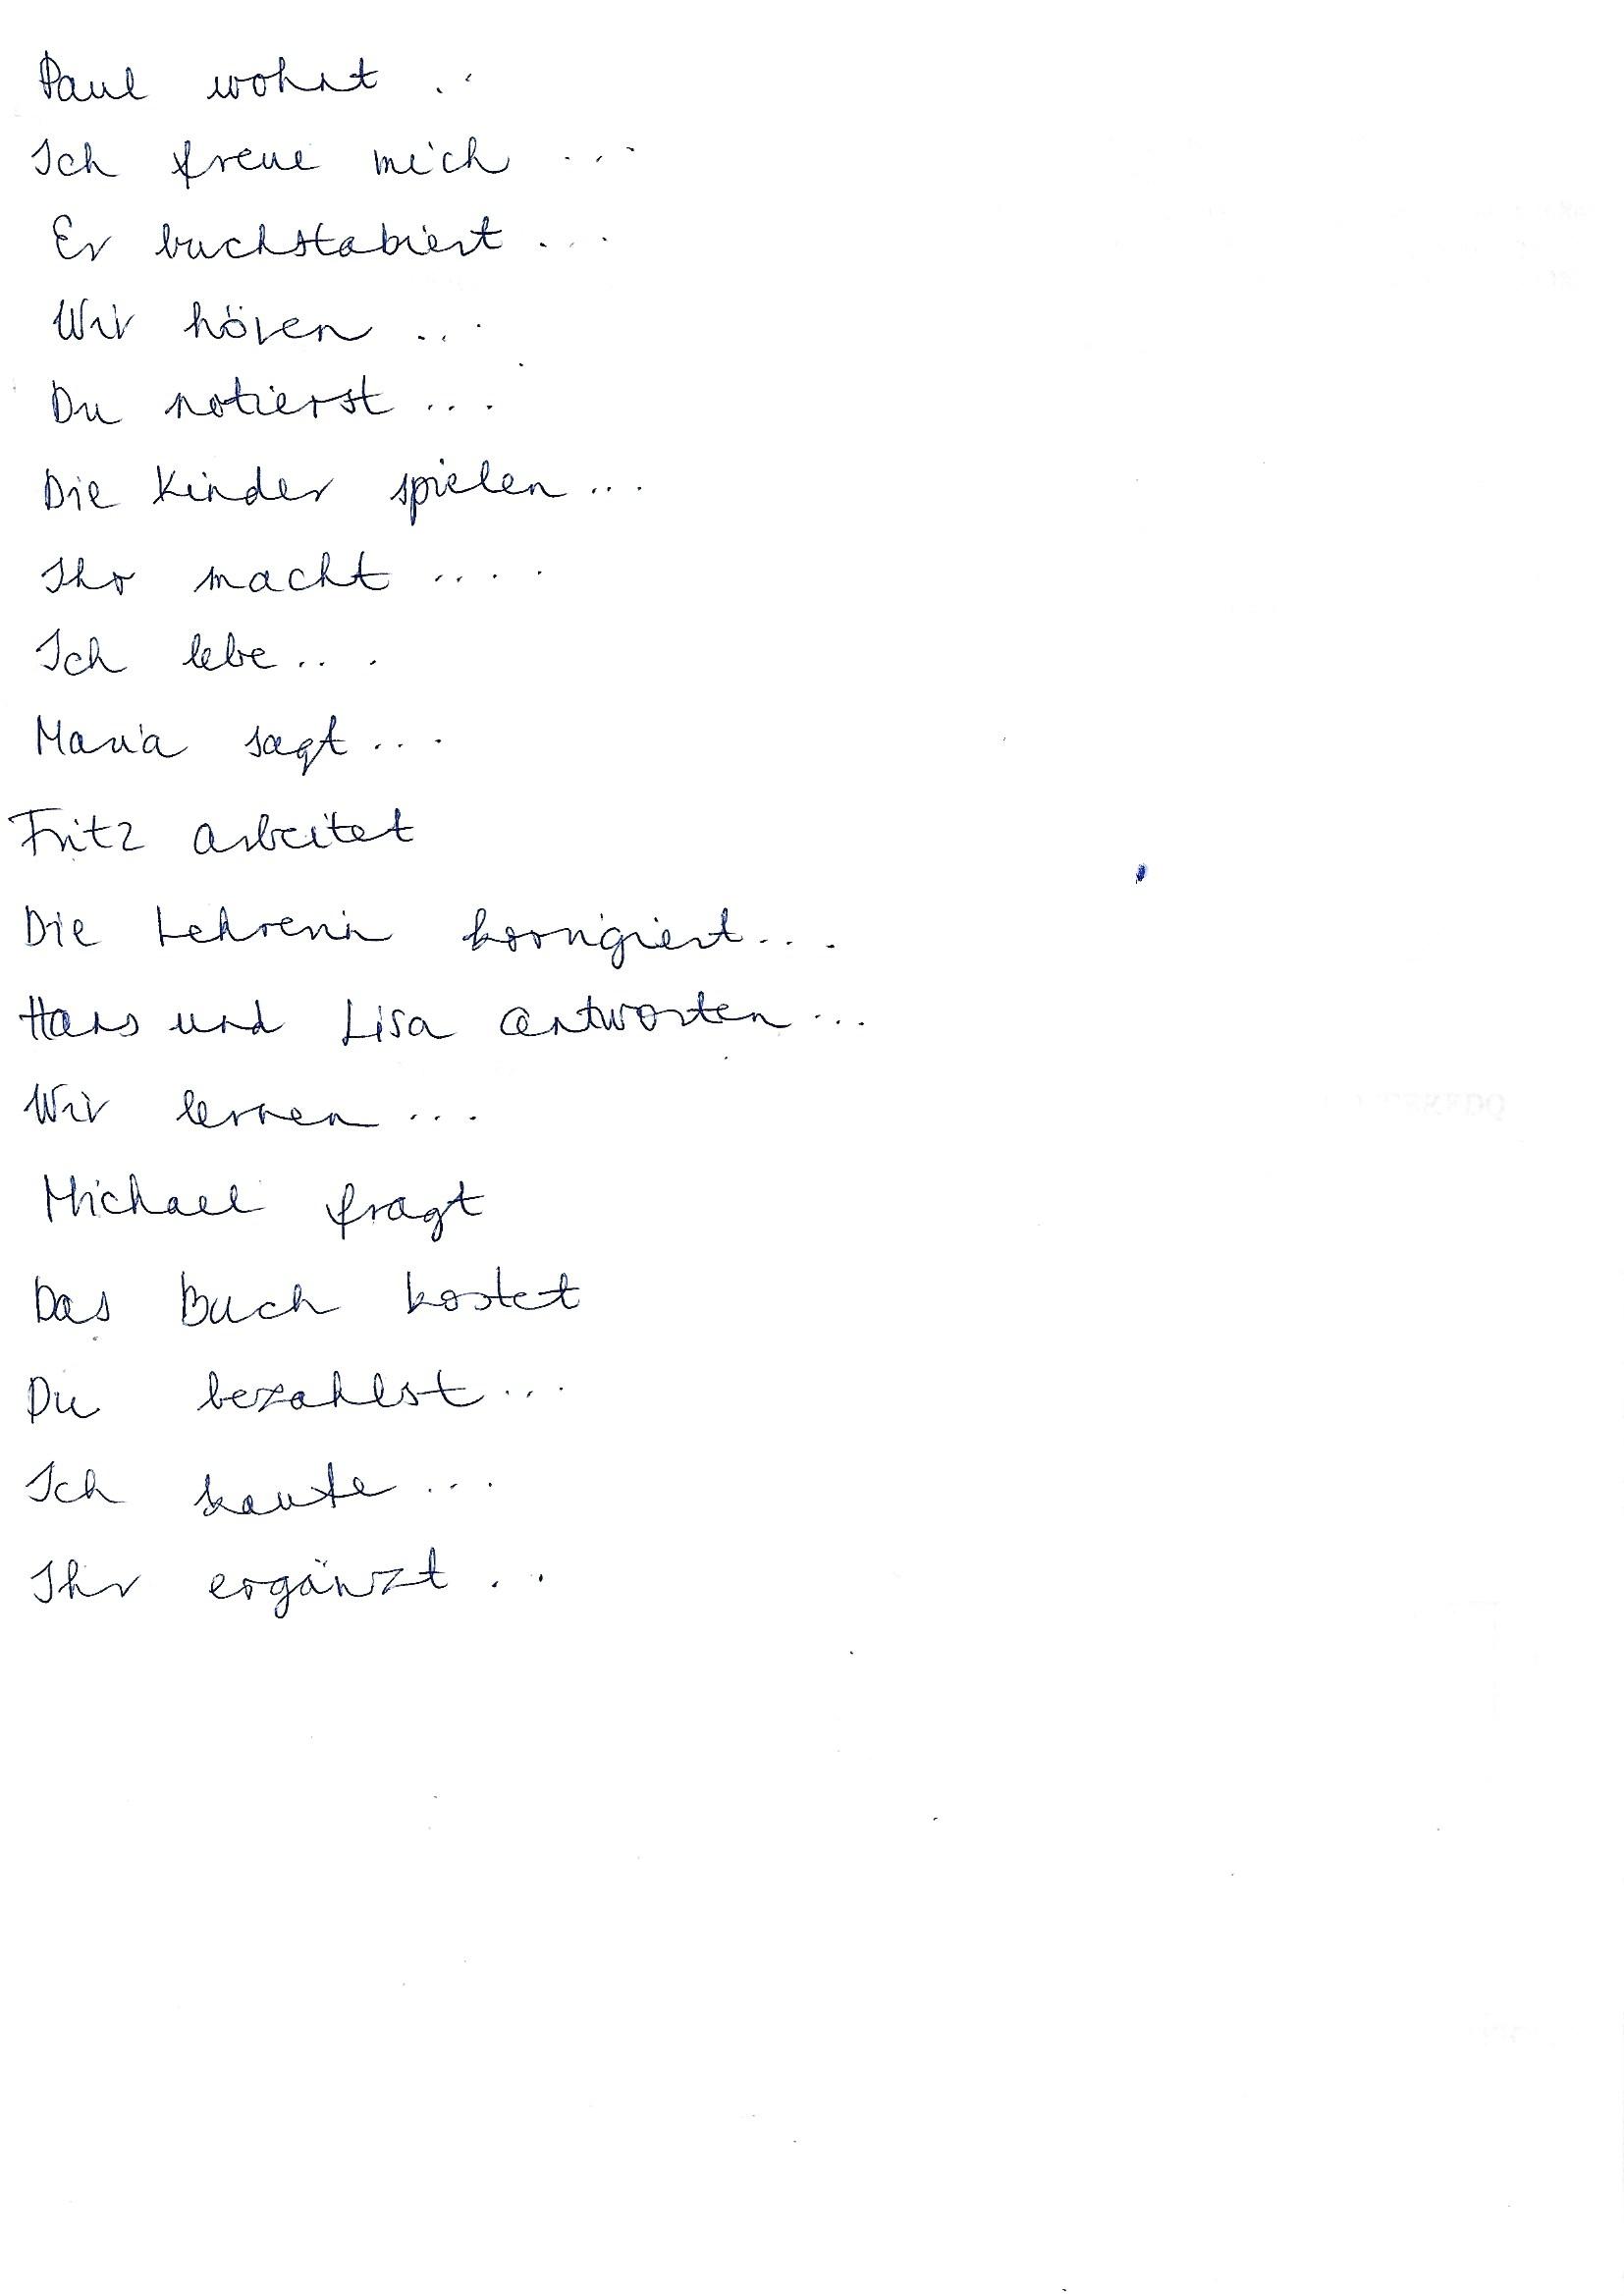 Paul wohnt ..
Ich freue mich ...
Er buchstabiert ...
Wir hören ...
Du notierst ...
Die Kinder spielen ...
Ihr macht ....
Ich lebe ...
Maria sagt ...
Fritz arbeitet
Die Lehrerin korrigiert ...
Hans und Lisa antworten ...
Wir lernen ...
Michael fragt
Das Buch kostet
Du bezahlst ...
Ich kaufe ...
Ihr ergänzt ..